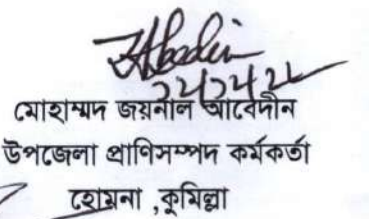 মোহাম্মদ জয়নাল আবেদীন
উপজেলা প্রাণিসম্পদ কর্মকর্তা
হোমনা ,কুমিল্লা